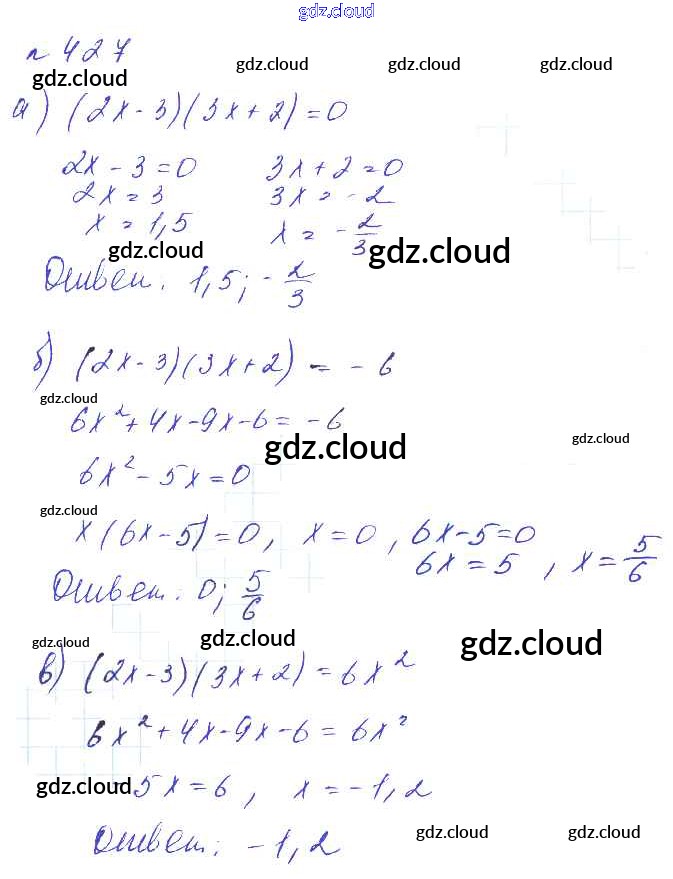 gdz.cloud
n 427
gdz.cloud gdz.cloud gdz.cloud
а) (2x - 3)(3x + 2) = 0
2x - 3 = 0 3x + 2 = 0
2x = 3 3x = -2
x = 1,5 x = -2/3
gdz.cloud gdz.cloud
Ответ: 1,5; -2/3
б) (2x - 3)(3x + 2) = - 6
gdz.cloud
6x² + 4x - 9x - 6 = -6
gdz.cloud gdz.cloud
6x² - 5x = 0
gdz.cloud
x(6x - 5) = 0, x = 0, 6x - 5 = 0
6x = 5, x = 5/6
Ответ: 0; 5/6
gdz.cloud gdz.cloud gdz.cloud
в) (2x - 3)(3x + 2) = 6x²
6x² + 4x - 9x - 6 = 6x²
gdz.cloud 5x = 6, x = -1,2
Ответ: -1,2
gdz.cloud gdz.cloud